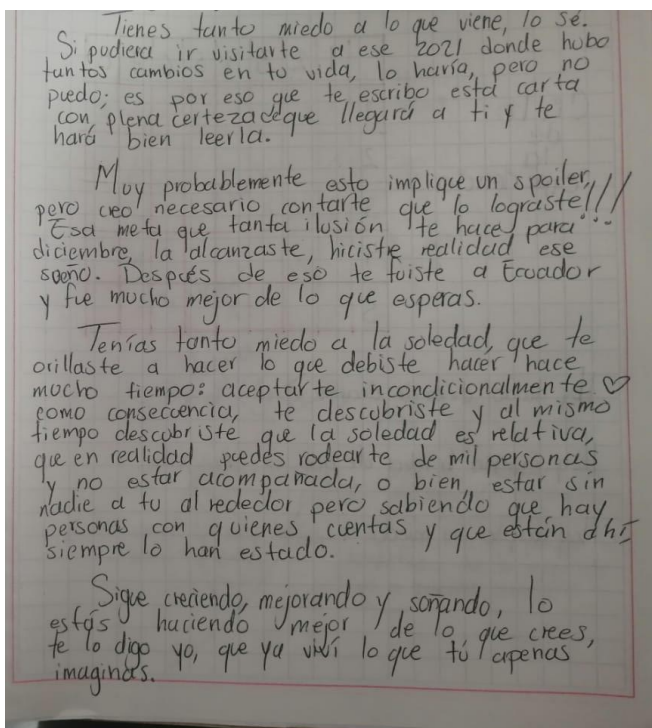 Tienes tanto miedo a lo que viene, lo sé.
Si pudiera ir visitarte a ese 2021 donde hubo
tantos cambios en tu vida, lo haría, pero no
puedo; es por eso que te escribo esta carta
con plena certeza de que llegará a ti y te
hará bien leerla.
Muy probablemente esto implique un spoiler,
pero creo necesario contarte que lo lograste!!!
Esa meta que tanta ilusión te hace para
diciembre, la alcanzaste, hiciste realidad ese
sueño. Después de eso te fuiste a Ecuador
y fue mucho mejor de lo que esperas.
Tenías tanto miedo a la soledad, que te
orillaste a hacer lo que debiste hacer hace
mucho tiempo: aceptarte incondicionalmente ♡
como consecuencia, te descubriste y al mismo
tiempo descubriste que la soledad es relativa,
que en realidad puedes rodearte de mil personas
y no estar acompañada, o bien, estar sin
nadie a tu alrededor pero sabiendo que hay
personas con quienes cuentas y que están ahí,
siempre lo han estado.
Sigue creciendo, mejorando y soñando, lo
estás haciendo mejor de lo que crees,
te lo digo yo, que ya viví lo que tú apenas
imaginas.